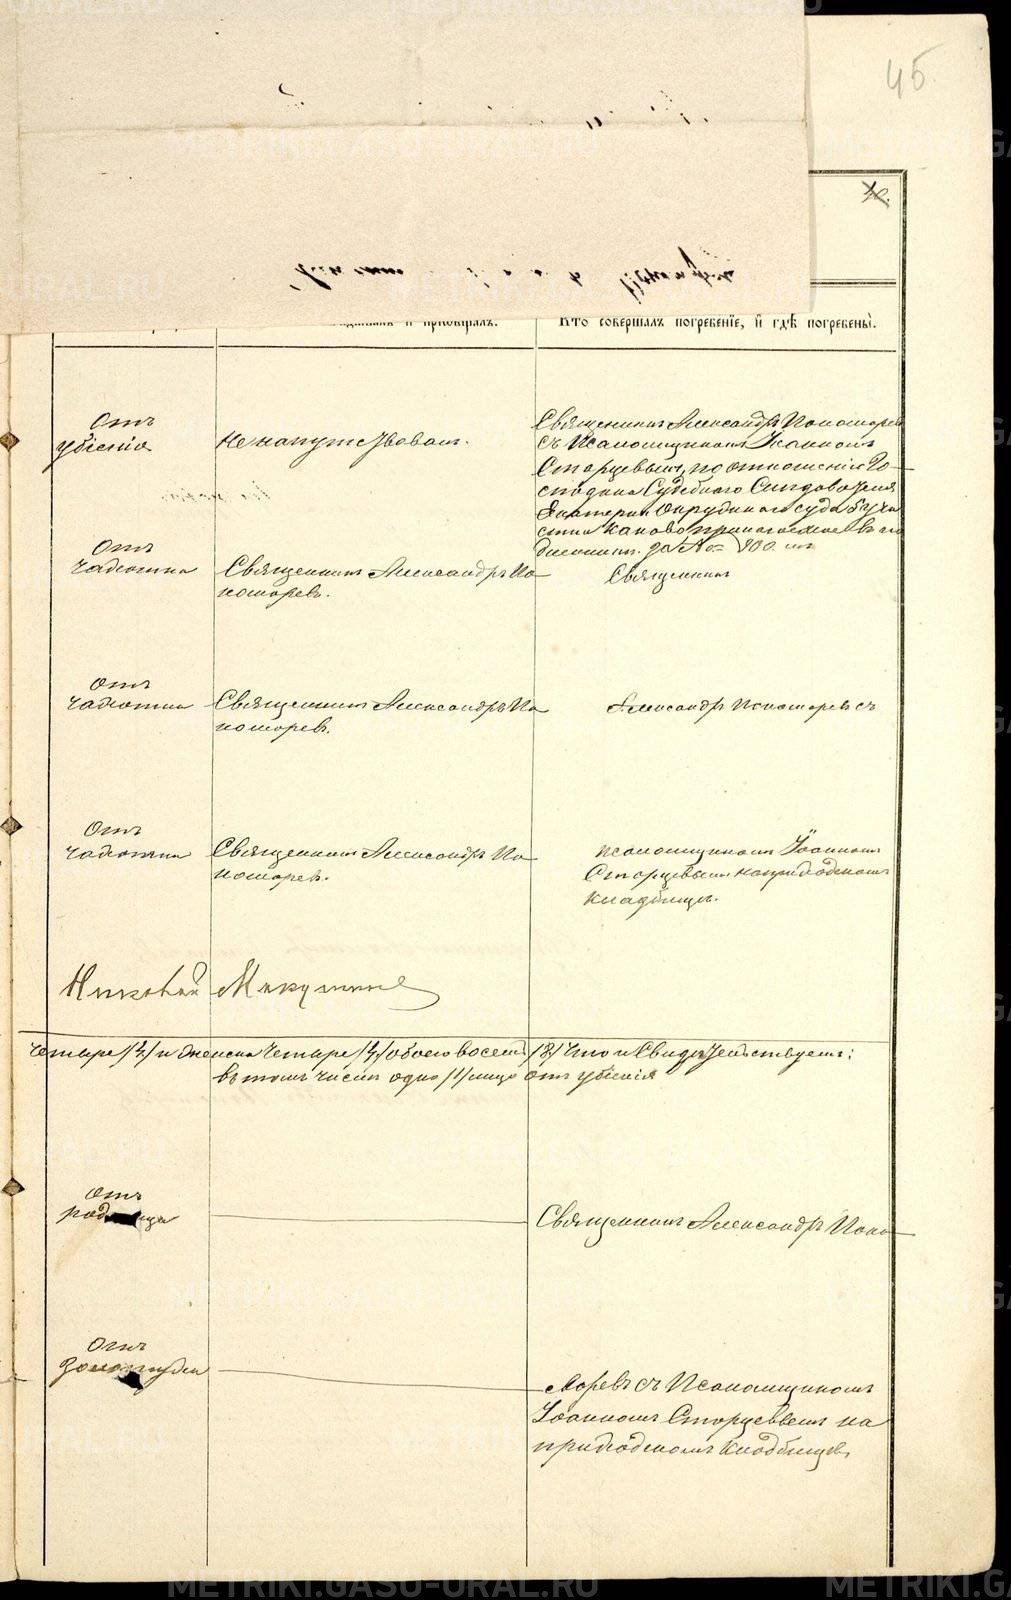 45
исповѣдывалъ и пріобщалъ.
Кто совершалъ погребеніе, и гдѣ погребены.
Отъ
убіенія
Не напутствованъ.
Священникъ Александръ Пономаревъ
съ Псаломщикомъ Іоанномъ
Старцевымъ, по отношенію Го-
сподина Судебнаго Слѣдователя
Екатерин. Окружнаго суда 5 уча
стка
Отъ
чахотки
Священникъ Александръ По-
номаревъ.
Священникъ
Отъ
чахотки
Священникъ Александръ По-
номаревъ.
Александръ Пономаревъ съ
Отъ
чахотки
Священникъ Александръ По-
номаревъ.
псаломщикомъ Іоанномъ
Старцевымъ на приходскомъ
кладбищѣ.
Николай
четыре /4/ и женска четыре /4/ обоего восемь /8/ что и свидѣтельствуемъ;
въ томъ числѣ одно /1/ лицо отъ убіенія
Отъ
Священникъ Александръ Поно-
Отъ
золотухи
маревъ съ Псаломщикомъ
Іоанномъ Старцевымъ на
приходскомъ кладбищѣ.
METRIKI.GASU-URAL.RU